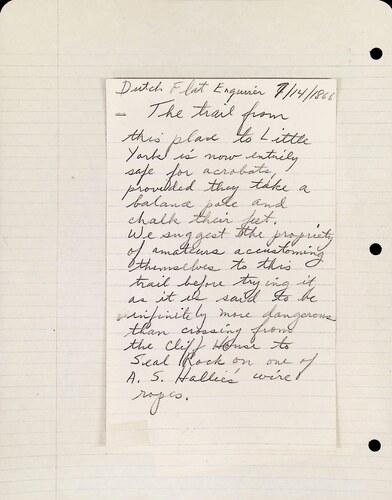 Dutch Flat Enquirer 7/14/1866
— The trail from
this place to Little
York is now entirely
safe for acrobats,
provided they take a
balance pole and
chalk their feet.
We suggest the propriety
of amateurs accustoming
themselves to this
trail before trying it,
as it is said to be
infinitely more dangerous
than crossing from
the Cliff House to
Seal Rock on one of
A. S. Hallie's wire
ropes.